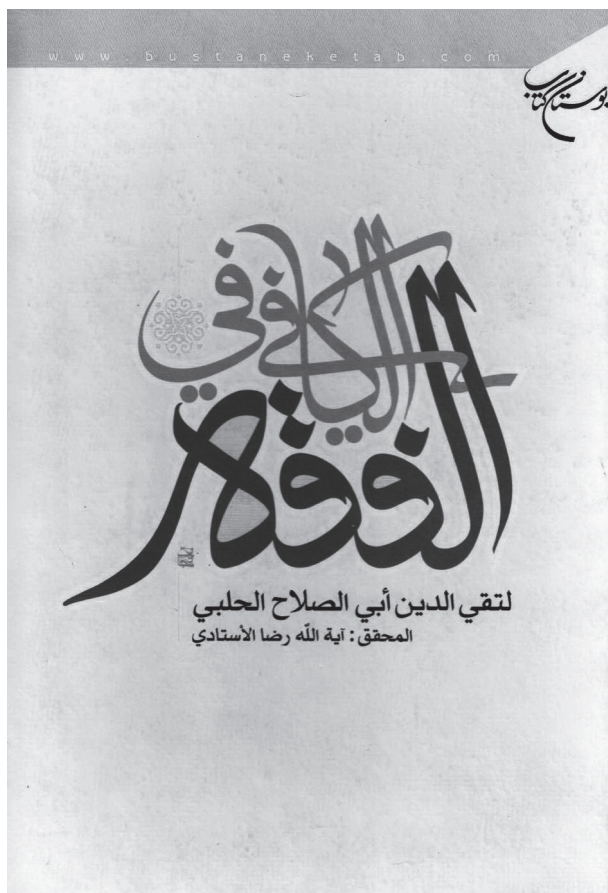 www.bustaneketab.com
بوستان کتاب
الكافي في
الفقه
لتقي الدين أبي الصلاح الحلبي
المحقق : آية اللّه رضا الأستادي